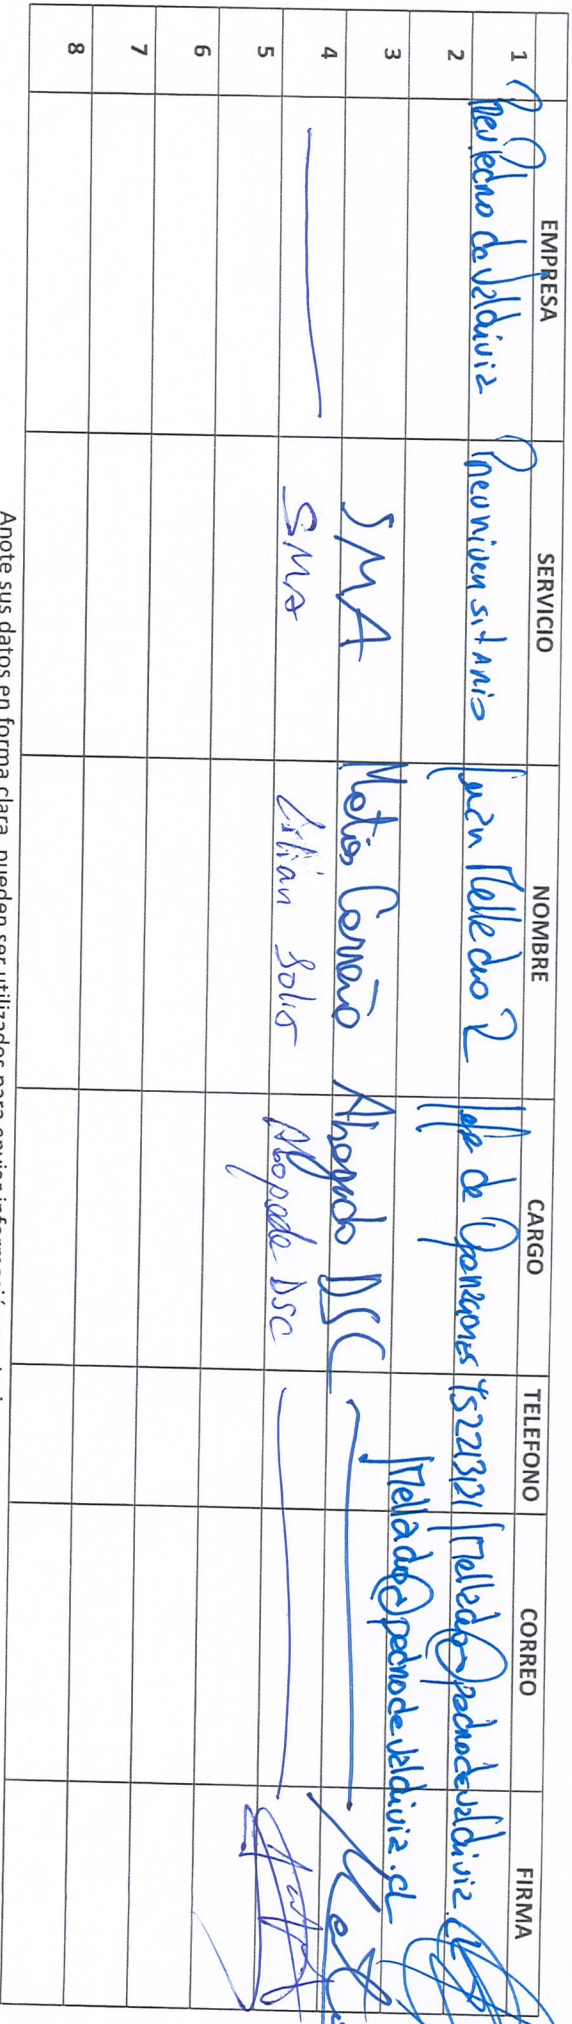 EMPRESA SERVICIO NOMBRE CARGO TELEFONO CORREO FIRMA
1 Preu Pedro de Valdivia Preuniversitario Mellado Jefe de Operaciones 452213121 @pedrodevaldivia.cl
2 Mellado@pedrodevaldivia.cl
3 SMA Matías Carreño Abogado DSC
4 SMA Lilian Solis Abogada DSC
5
6
7
8
Anote sus datos en forma clara, pueden ser utilizados para enviar información